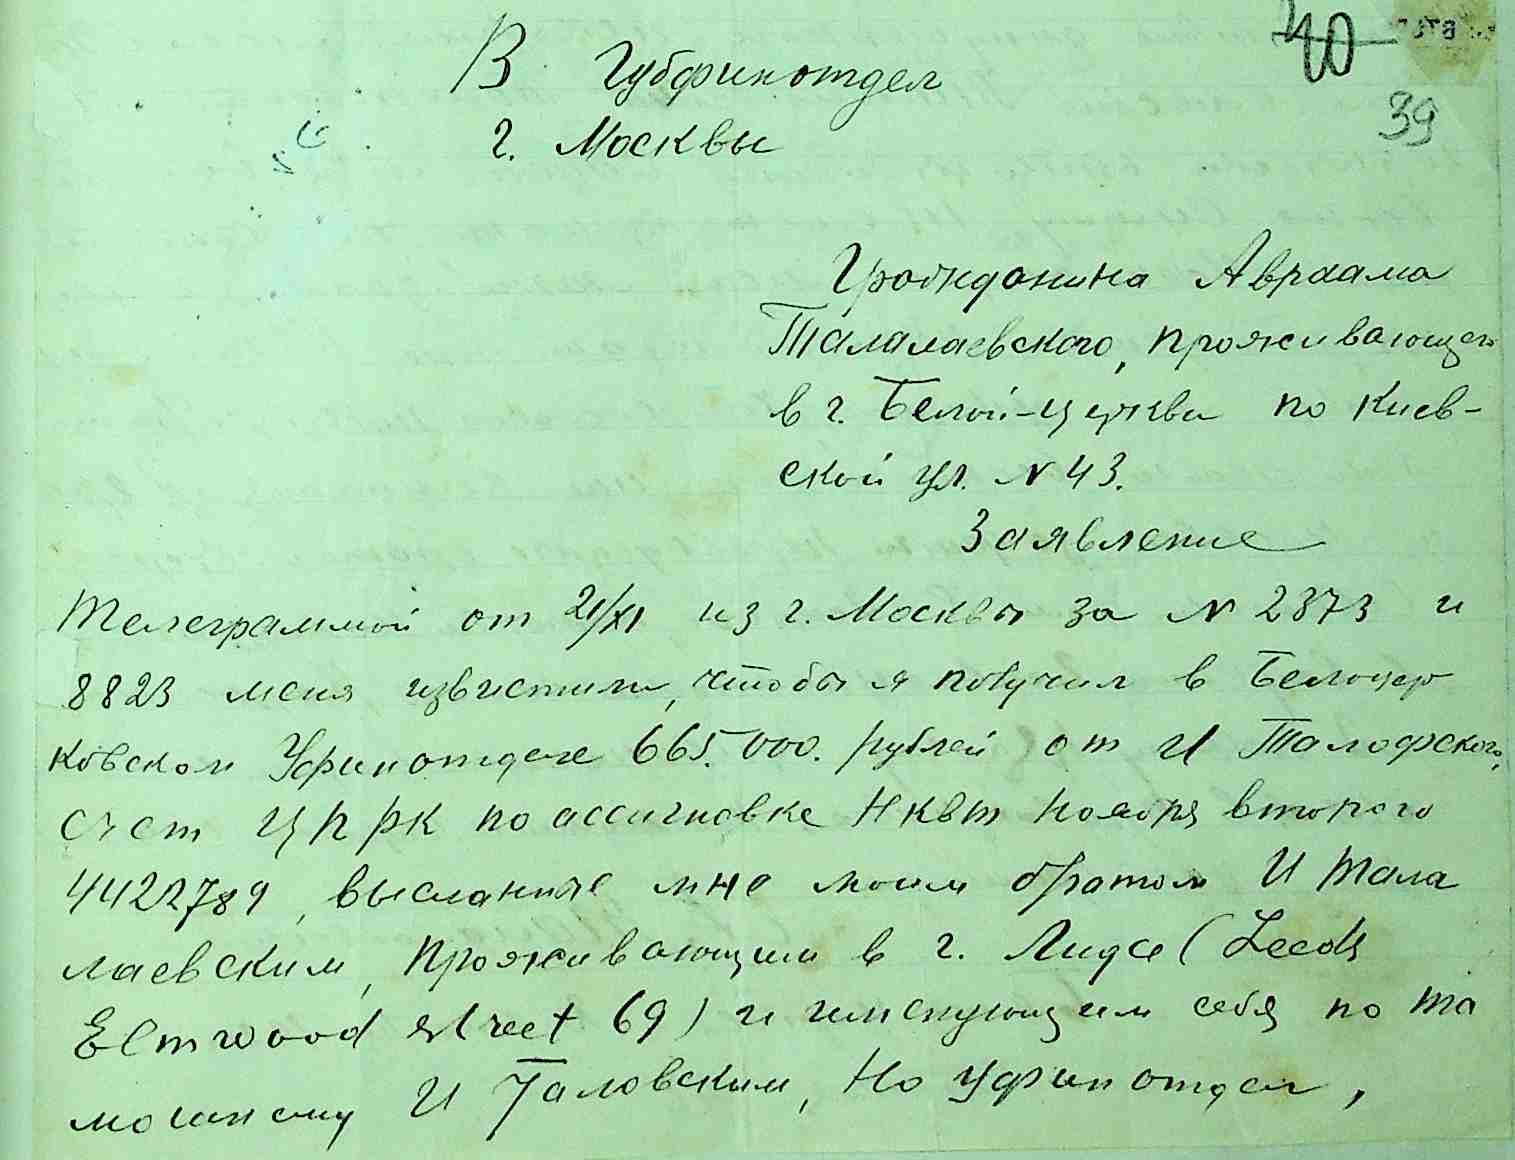 40
39
В Губфинотдел
г. Москвы
Гражданина Авраама
Талалаевского, проживающего
в г. Белой-Церкви по Киев-
ской ул. N 43.
Заявление
Телеграммой от 21/XI из г. Москвы за N 2373 и
8823 меня известили, чтобы я получил в Белоцер
ковском Уфинотделе 665.000. рублей от И Талофского,
счет ЦРРК по ассигновке НКВТ ноября второго
4422789, высланные мне моим братом И Тала
лаевским, проживающим в г. Лидсе (Leeds
Elmwood street 69) и именующим себя по та
мошнему И Таловским, Но Уфинотдел,